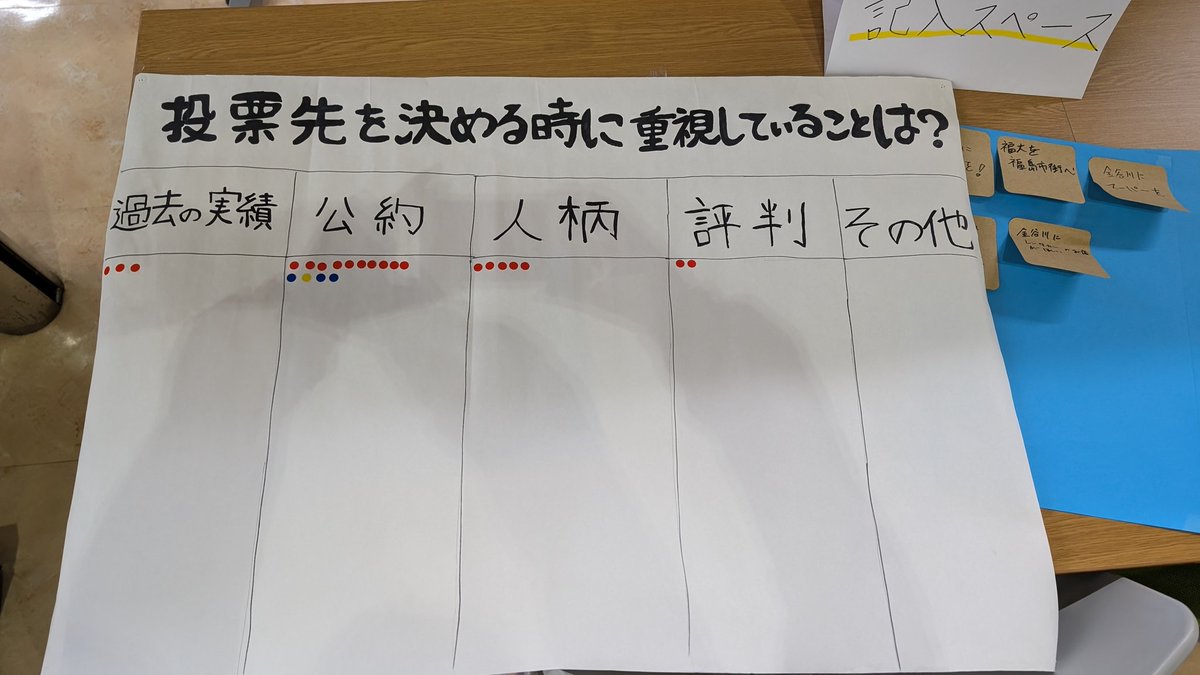 記入スペース
投票先を決める時に重視していることは?
過去の実績
公約
人柄
評判
その他
に
を!
福大を
福島市街へ!
金谷川に
スーパーを
金谷川に